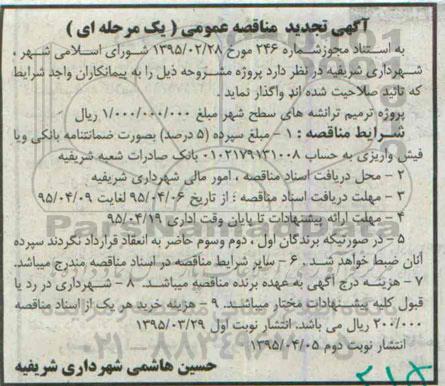 آگهی تجدید مناقصه عمومی ( یک مرحله ای )
به استناد مجوزشماره ۲۴۶ مورخ ۱۳۹۵/۰۲/۲۸ شورای اسلامی شهر ،
شهرداری شریفیه در نظر دارد پروژه مشروحه ذیل را به پیمانکاران واجد شرایط
که تائید صلاحیت شده اند واگذار نماید .
پروژه ترمیم ترانشه های سطح شهر مبلغ ۱/۰۰۰/۰۰۰/۰۰۰ ریال
شرایط مناقصه : ۱ - مبلغ سپرده (۵ درصد) بصورت ضمانتنامه بانکی ویا
فیش واریزی به حساب ۰۱۰۲۱۷۹۱۳۱۰۰۸ بانک صادرات شعبه شریفیه
۲ - محل دریافت اسناد مناقصه ، امور مالی شهرداری شریفیه
۳ - مهلت دریافت اسناد مناقصه : از تاریخ ۹۵/۰۴/۰۶ لغایت ۹۵/۰۴/۰۹
۴ - مهلت ارائه پیشنهادات تا پایان وقت اداری ۹۵/۰۴/۱۹
۵ - در صورتیکه برندگان اول ، دوم وسوم حاضر به انعقاد قرارداد نگردند سپرده
آنان ضبط خواهد شد . ۶ - سایر شرایط مناقصه در اسناد مناقصه مندرج میباشد.
۷ - هزینه درج آگهی به عهده برنده مناقصه میباشد. ۸ - شهرداری در رد یا
قبول کلیه پیشنهادات مختار میباشد. ۹ - هزینه خرید هر یک از اسناد مناقصه
۲۰۰/۰۰۰ ریال می باشد. انتشار نوبت اول ۱۳۹۵/۰۳/۲۹
انتشار نوبت دوم ۱۳۹۵/۰۴/۰۵
حسین هاشمی شهرداری شریفیه
ParsNamadData
۰۲۱-۸۸۳۴۹